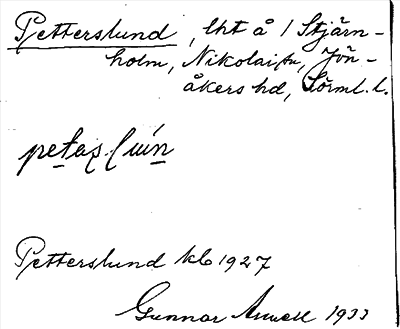 Petterslund, lht å / Stjärn-
holm, Nikolai sn, Jön-
åkers hd, Sörml. l.
petaș luìn
Petterslund kb 1927
Gunnar 1933